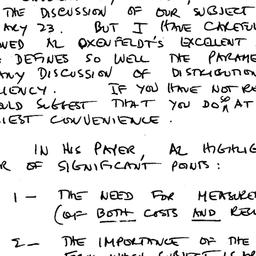 THE DISCUSSION OF OUR SUBJECT
ARY 23. BUT I HAVE CAREFUL
WED AL OXENFELDT'S EXCELLENT
DEFINES SO WELL THE PARAME
ANY DISCUSSION OF DISTRIBUTION
LIENCY. IF YOU HAVE NOT RE
OULD SUGGEST THAT YOU DO SO AT
LIEST CONVENIENCE.
IN HIS PAPER, AL HIGHLIG
R OF SIGNIFICANT POINTS:
1 - THE NEED FOR MEASURE
(OF BOTH COSTS AND REV
2 - THE IMPORTANCE OF THE